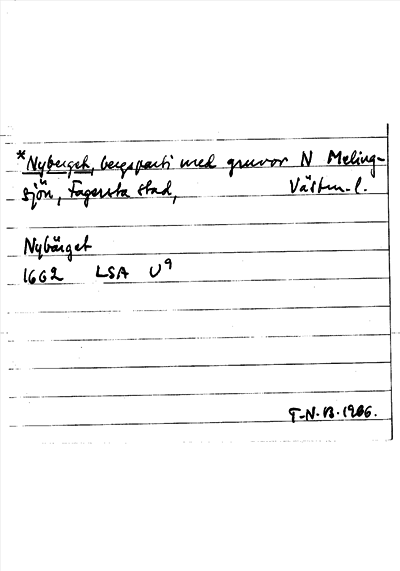 *Nyberget, bergsparti med gruvor N Meling-
sjön, Fagersta stad, Västm. l.
Nybärget
1662 LSA U9
T-N.B. 1966.